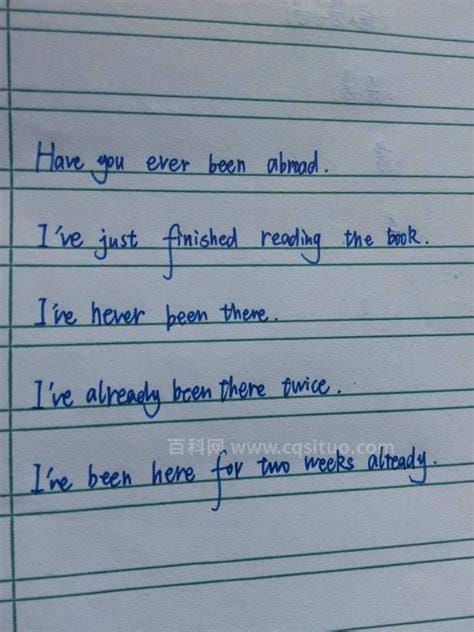 Have you ever been abroad.
I've just finished reading the book.
I've never been there.
I've already been there twice.
百科网 www.cqsituo.com
I've been here for two weeks already.